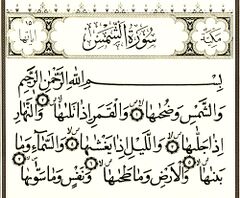 مكية سُورَةُ الشَّمْسِ ١٥ آياتها
بِسْمِ اللهِ الرَّحْمٰنِ الرَّحِيْمِ
وَالشَّمْسِ وَضُحٰىهَا وَالْقَمَرِ اِذَا تَلٰىهَا وَالنَّهَارِ
اِذَا جَلّٰىهَا وَالَّيْلِ اِذَا يَغْشٰىهَا وَالسَّمَآءِ وَمَا
بَنٰىهَا وَالْاَرْضِ وَمَا طَحٰىهَا وَنَفْسٍ وَّمَا سَوّٰىهَا